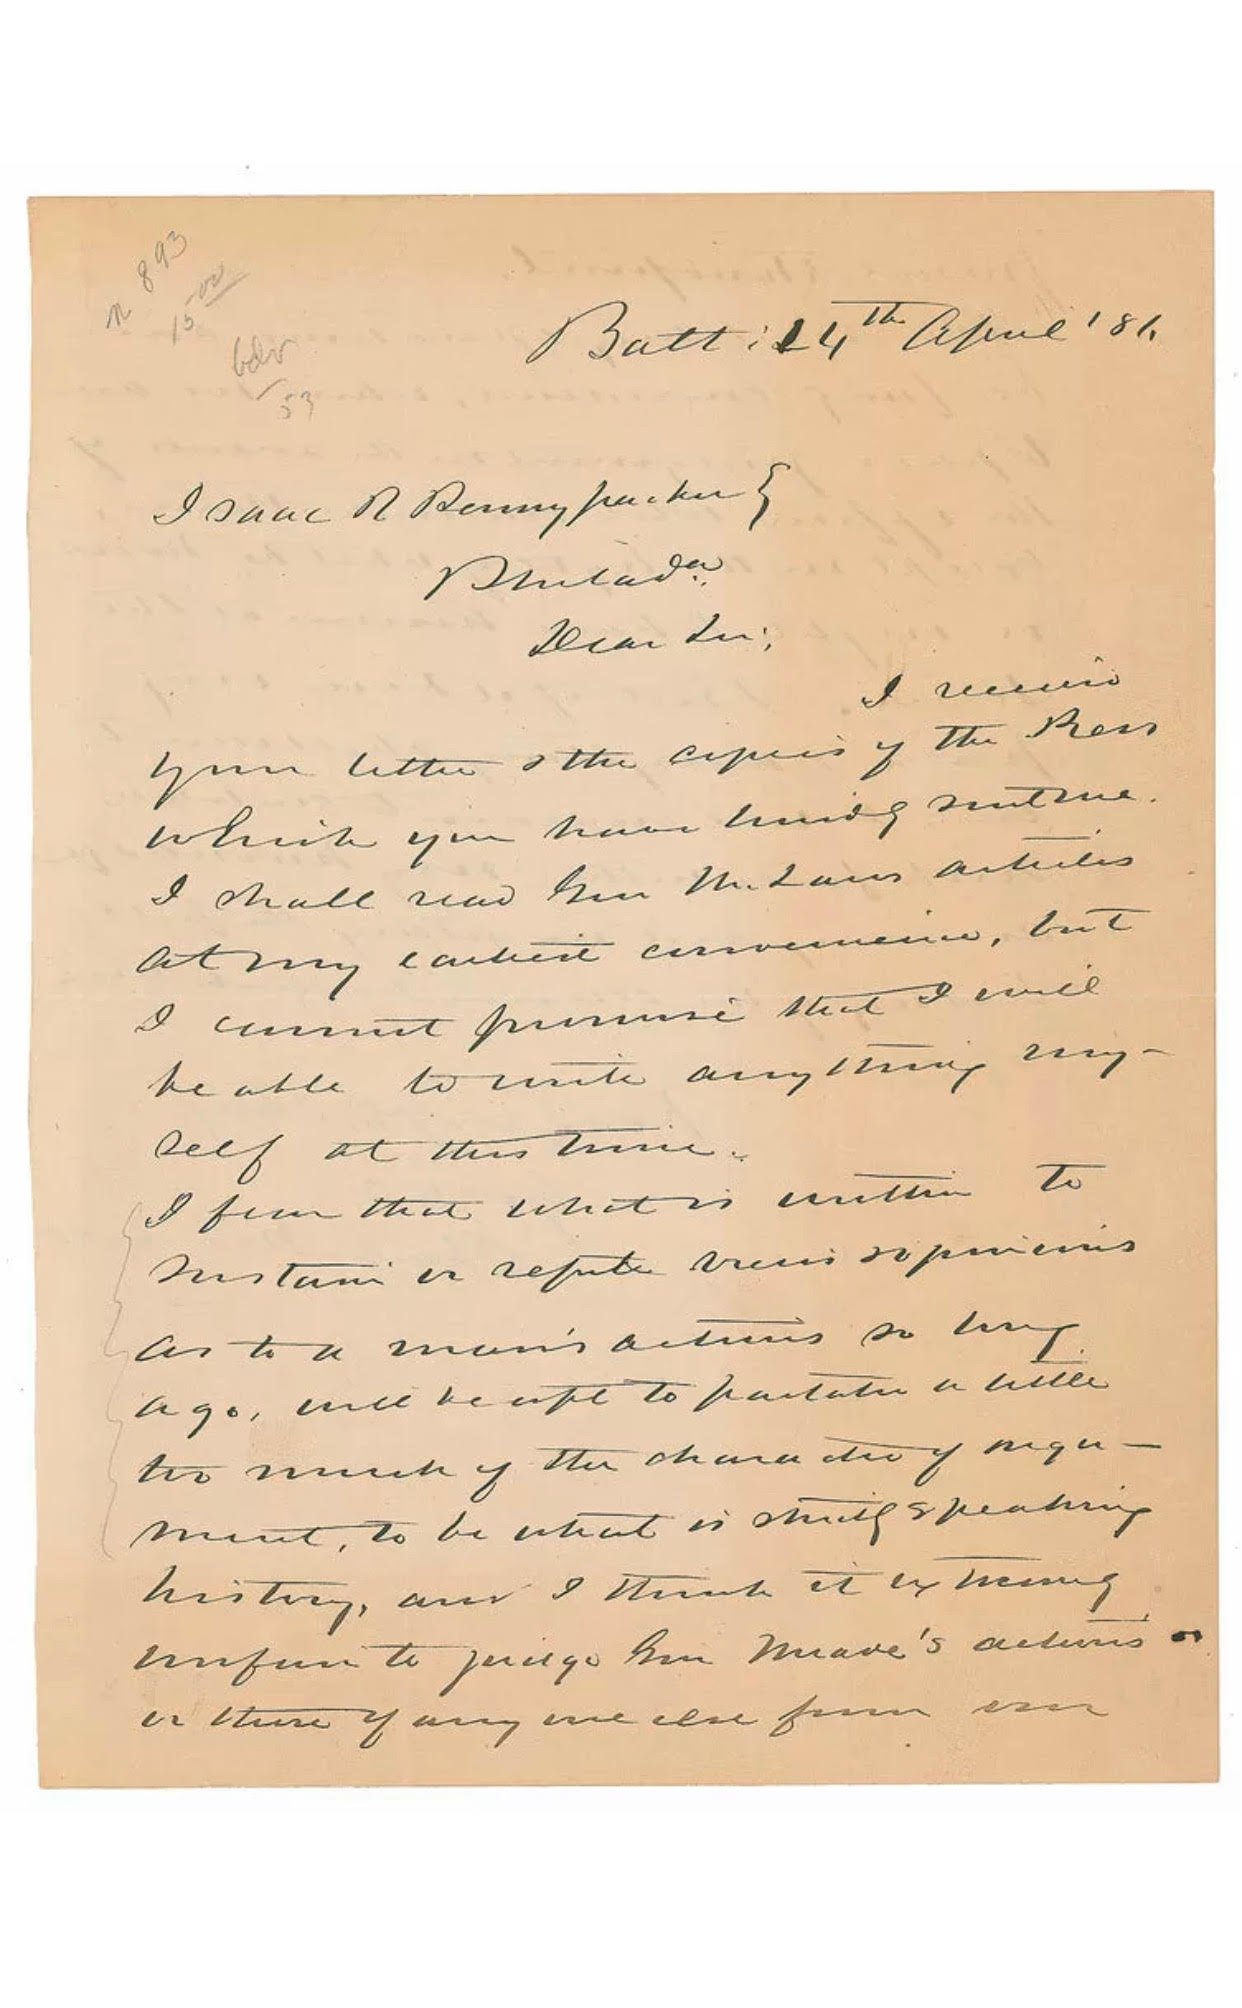 n 893
15 00
53
Balt: 24th April '86
Isaac R Pennypacker }
Philada.
Dear Sir;
I receive
your letter & the copies of the Press
which you have kindly sent me.
I shall read Gen McLaws articles
at my earliest convenience, but
I cannot promise that I will
be able to write anything my-
self at this time.
I fear that what is written to
sustain or refute views & opinions
as to a man's actions so long
ago, will be apt to partake a little
too much of the character of argu-
ment, to be what is strictly speaking
history, and I think it extremely
unfair to judge Gen Meade's actions
or those of any one else from our